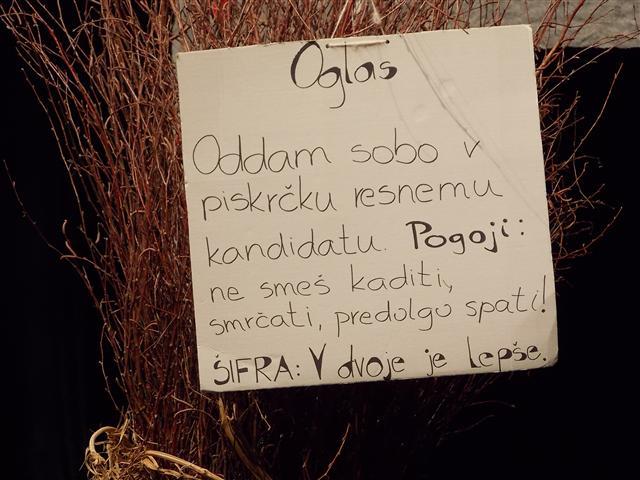 Oglas
Oddam sobo v
piskrčku resnemu
kandidatu. Pogoji:
ne smeš kaditi,
smrčati, predolgo spati!
ŠIFRA: V dvoje je lepše.